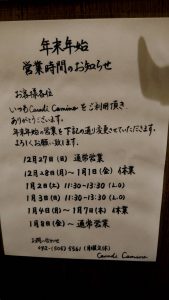 年末年始
営業時間のお知らせ
お客様各位
いつもCanadi Caminoをご利用頂き
ありがとうございます。
年末年始の営業を下記の通り変更させていただきます。
よろしくお願い致します。
12月27日(日) 通常営業
12月28日(月)～1月1日(金) 休業
1月2日(土) 11:30-13:30 (L.O)
1月3日(日) 11:30-13:30 (L.O)
1月4日(月)～1月7日(木) 休業
1月8日(金)～ 通常営業
お問い合わせ